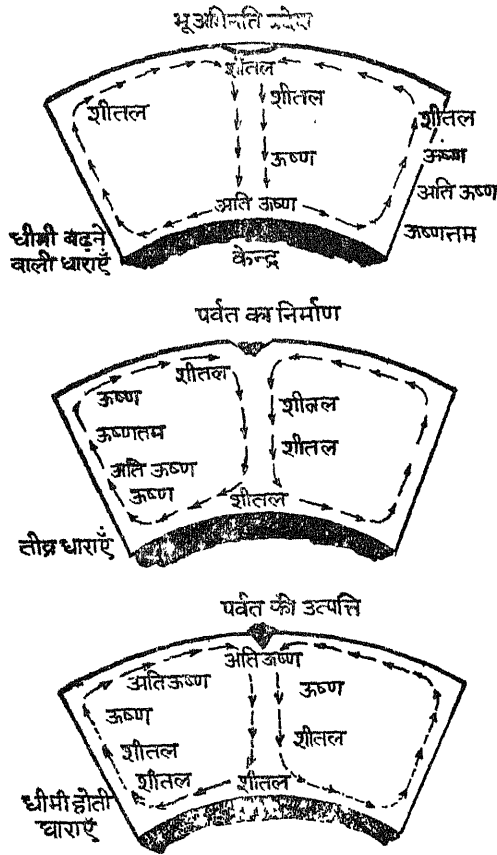 भू अभिनति प्रदेश
शीतल
शीतल शीतल शीतल
ऊष्ण ऊष्ण
अति ऊष्ण अति ऊष्ण
धीमी बढ़ने ऊष्णत्तम
वाली धाराएँ केन्द्र
पर्वत का निर्माण
शीतल
ऊष्ण शीतल
ऊष्णतम शीतल
अति ऊष्ण
ऊष्ण शीतल
तीव्र धाराएँ
पर्वत की उत्पत्ति
अतिऊष्ण
अतिऊष्ण ऊष्ण
ऊष्ण
शीतल शीतल
शीतल शीतल
धीमी होती
धाराएँ